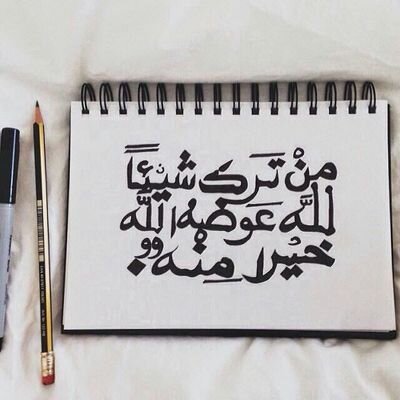 مَنْ تَرَكَ شَيْئاً
للَّه عَوَضَهُ اللَّه
خَيْرًا مِنْه